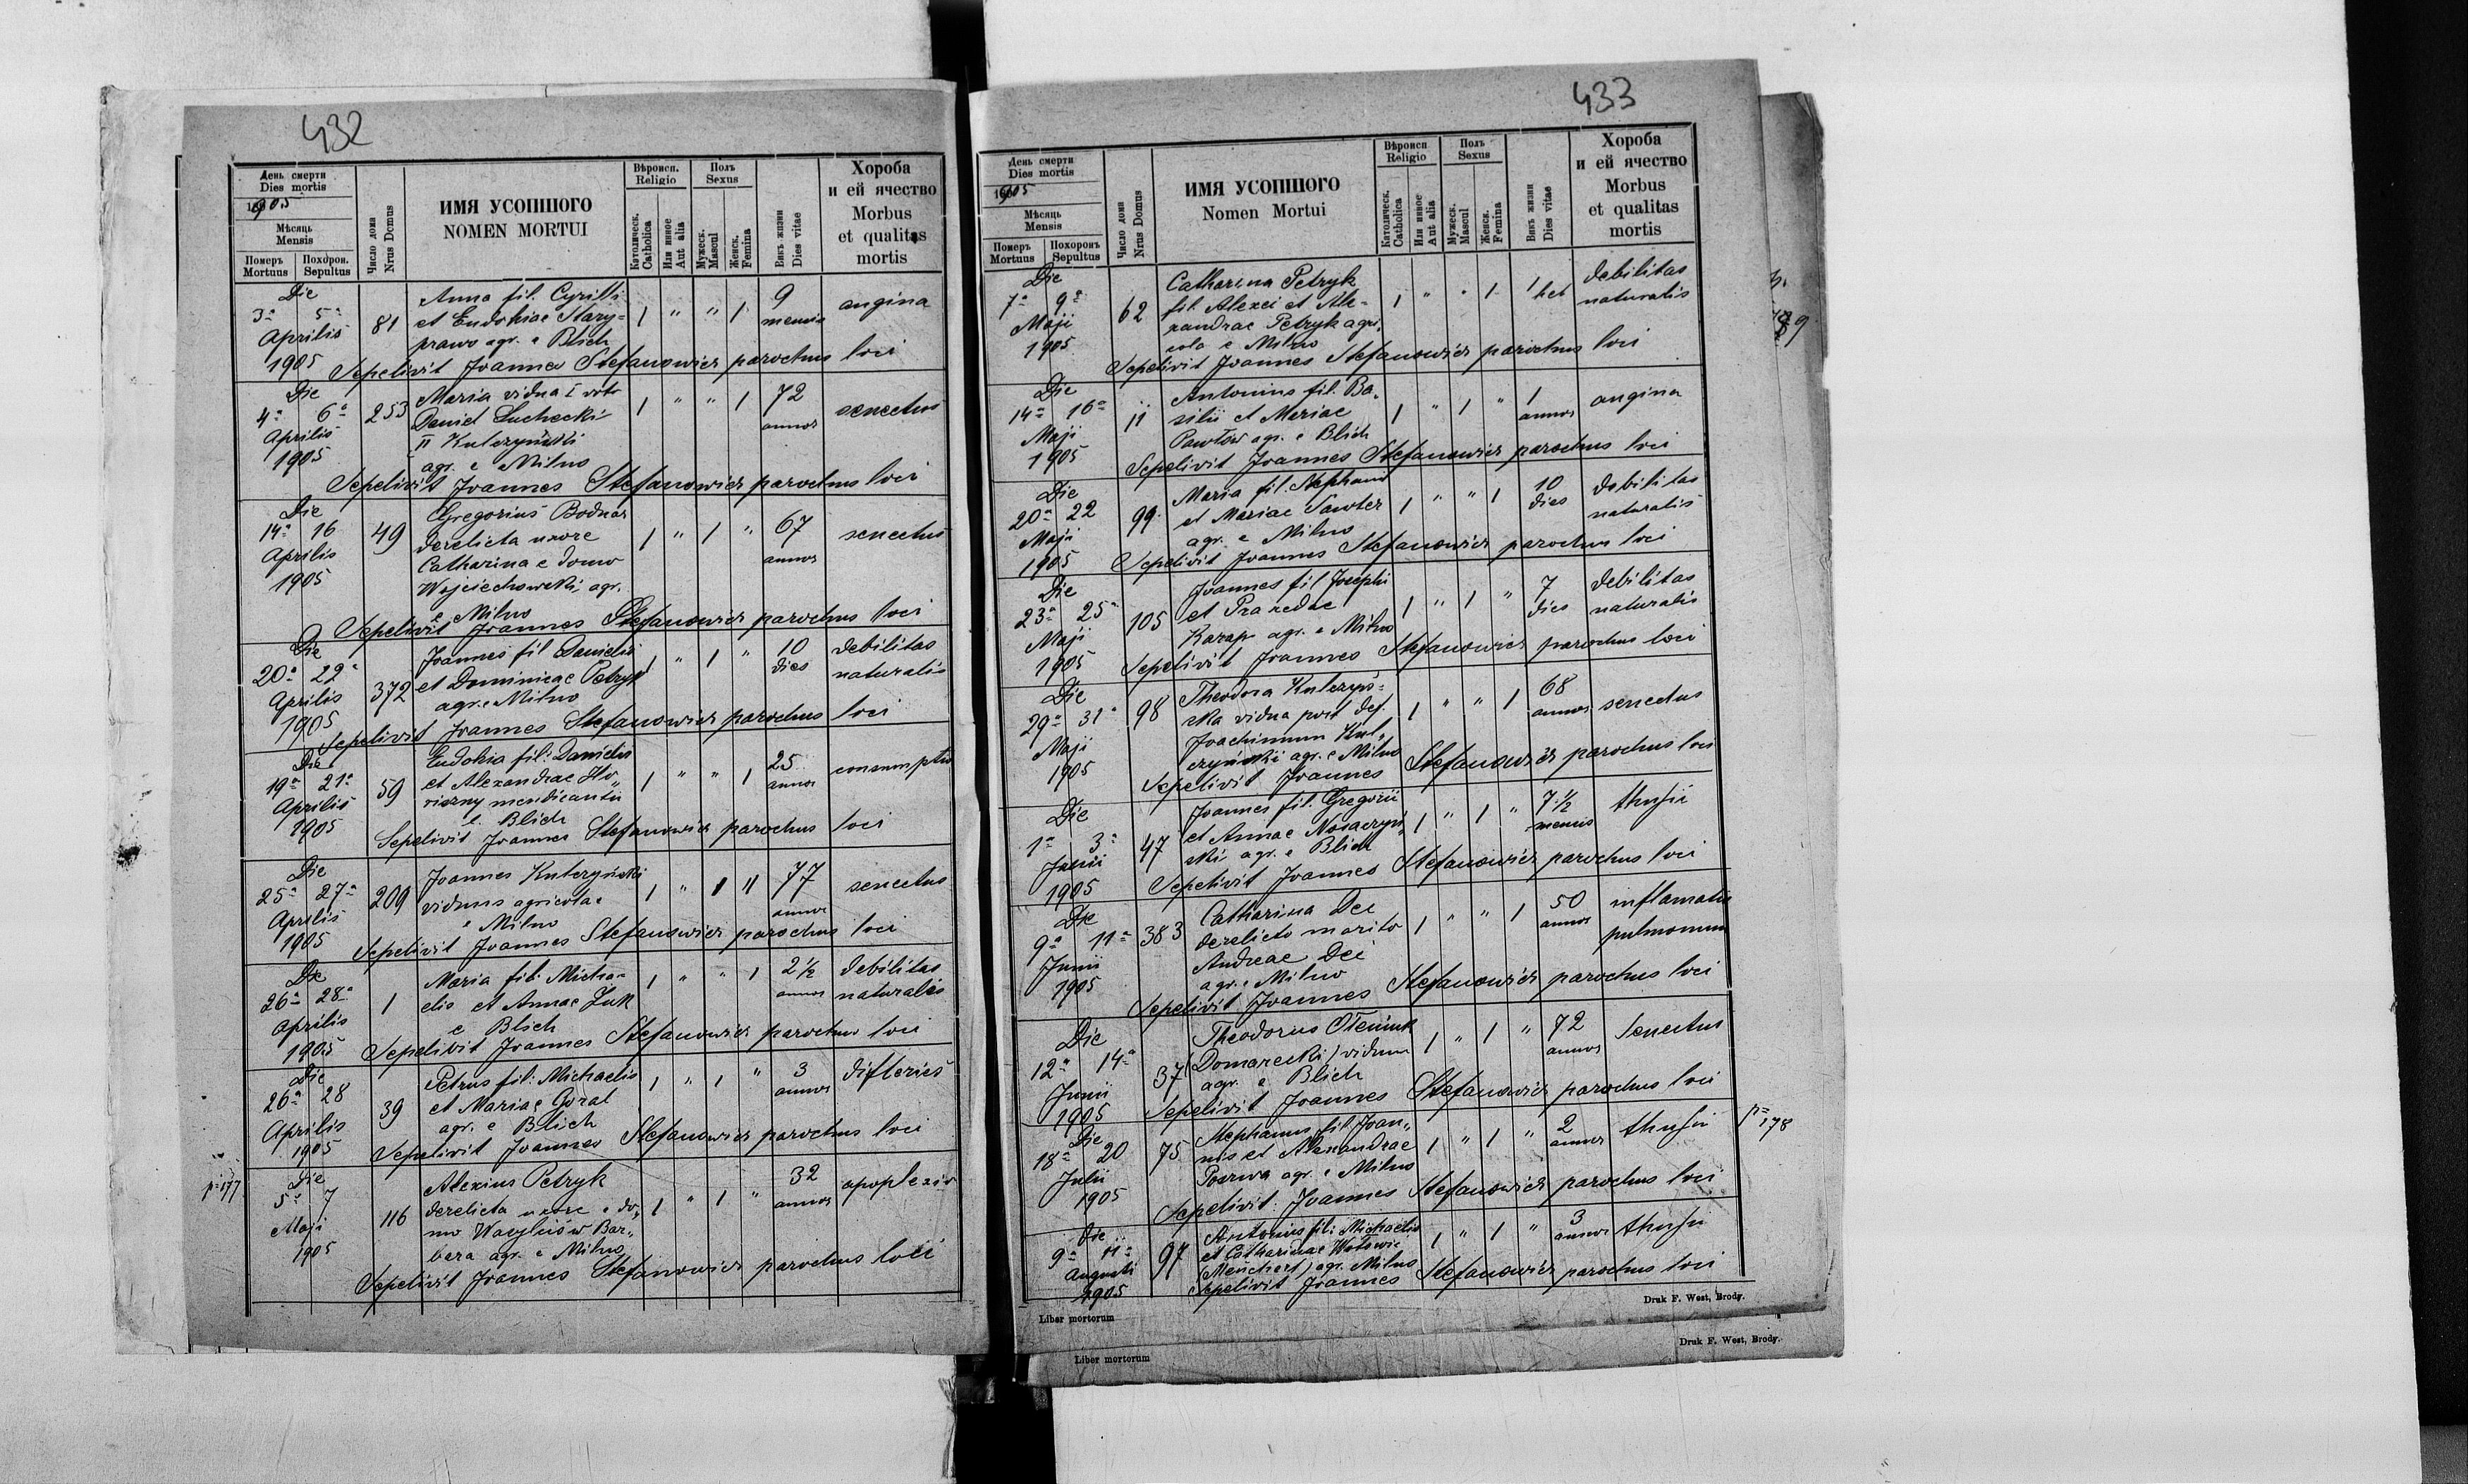 432
День смерти
Dies mortis
1905
Мѣсяць
Mensis
Померъ
Mortuus
Похорон.
Sepultus
Число дома
Nrus Domus
ИМЯ УСОПШОГО
NOMEN MORTUI
Вѣроисп.
Religio
Католическ.
Catholica
Или иное
Aut alia
Полъ
Sexus
Мужеск.
Mascul
Женск.
Femina
Вѣкъ жизни
Dies vitae
Хороба
и ей ячество
Morbus
et qualitas
mortis
Die
3ª 5ª
Aprilis
1905
81
Anna fil. Cyrilli
et Eudokiae Stary=
prawo agr. e Blich
1 " " 1
9
mensis
angina
Sepelivit Joannes Stefanowicz parochus loci
Die
4ª 6ª
Aprilis
1905
253
Maria vidua I voto
Daniel Suchecki
II Kulczyński
agr. e Milno
1 " " 1
72
annos
senectus
Sepelivit Joannes Stefanowicz parochus loci
Die
14ª 16
Aprilis
1905
49
Gregorius Bodnar
derelicta uxore
Catharina e domo
Wojciechowski, agr.
e Milno
1 " 1 "
67
annos
senectus
Sepelivit Joannes Stefanowicz parochus loci
Die
20ª 22ª
Aprilis
1905
372
Joannes fil Danielis
et Dominicae Petryk
agr. e Milno
1 " 1 "
10
dies
debilitas
naturalis
Sepelivit Joannes Stefanowicz parochus loci
Die
19ª 21ª
Aprilis
1905
59
Eudokia fil: Danielis
et Alexandrae
mendicantis
e Blich
1 " " 1
25
annos
consumptio
Sepelivit Joannes Stefanowicz parochus loci
Die
25ª 27ª
Aprilis
1905
209
Joannes Kulczyński
viduus agricola
e Milno
1 " 1 "
77
annos
senectus
Sepelivit Joannes Stefanowicz parochus loci
Die
26ª 28ª
Aprilis
1905
1
Maria fil: Micha=
elis et Annae Żuk
e Blich
1 " " 1
2 ½
annos
debilitas
naturalis
Sepelivit Joannes Stefanowicz parochus loci
Die
26ª 28
Aprilis
1905
39
Petrus fil: Michaelis
et Mariae Goral
agr. e Blich
1 " 1 "
3
annos
difteries
Sepelivit Joannes Stefanowicz parochus loci
p=177
Die
5ª 7
Maji
1905
116
Alexius Petryk
derelicta uxore e do=
mo Wasylciów Bar=
bara agr. e Milno
1 " 1 "
32
annos
apoplexia
Sepelivit Joannes Stefanowicz parochus loci
433
День смерти
Dies mortis
1905
Мѣсяць
Mensis
Померъ
Mortuus
Похоронъ
Sepultus
Число дома
Nrus Domus
ИМЯ УСОПШОГО
Nomen Mortui
Вѣроисп
Religio
Католическ.
Catholica
Или иное
Aut alia
Полъ
Sexus
Мужеск.
Mascul
Женск.
Femina
Вѣкъ жизни
Dies vitae
Хороба
и ей ячество
Morbus
et qualitas
mortis
Die
7ª 9ª
Maji
1905
62
Catharina Petryk
fil. Alexei et Ale=
xandrae Petryk agri,
cola e Milno
1 " " 1
debilitas
naturalis
Sepelivit Joannes Stefanowicz parochus loci
Die
14ª 16ª
Maji
1905
11
Antonius fil. Ba,
silii et Mariae
Pawłów agr. e Blich
1 " 1 "
1
annos
angina
Sepelivit Joannes Stefanowicz parochus loci
Die
20ª 22
Maji
1905
99
Maria fil. Stephani
et Mariae Sawter
agr. e Milno
1 " " 1
10
dies
debilitas
naturalis
Sepelivit Joannes Stefanowicz parochus loci
Die
23ª 25ª
Maji
1905
105
Joannes fil Josephi
et Praxedae
Karap agr. e Milno
1 " 1 "
7
dies
debilitas
naturalis
Sepelivit Joannes Stefanowicz parochus loci
Die
29ª 31ª
Maji
1905
98
Theodora Kulczyń=
ska vidua post def.
Joachimum Kul=
czyński agr. e Milno
1 " " 1
68
annos
senectus
Sepelivit Joannes Stefanowicz parochus loci
Die
1ª 3ª
Junii
1905
47
Joannes fil. Gregorii
et Annae Nosaczyń
ski agr. e Blich
1 " 1 "
7 ½
mensis
thussis
Sepelivit Joannes Stefanowicz parochus loci
Die
9ª 11ª
Junii
1905
383
Catharina Dei
derelicto marito
Andreae Dei
agr. e Milno
1 " " 1
50
annos
inflamatio
pulmonum
Sepelivit Joannes Stefanowicz parochus loci
Die
12ª 14ª
Junii
1905
37
Theodorus Oleniuk
(Domarecki) viduus
agr. e Blich
1 " 1 "
72
annos
Senectus
Sepelivit Joannes Stefanowicz parochus loci
Die
18ª 20
Julii
1905
75
Stephanus fil. Joan,,
nis et Alexandrae
Poerwa agr. e Milno
1 " 1 "
2
annos
thussis
p=178
Sepelivit Joannes Stefanowicz parochus loci
Die
9ª 11ª
Augusti
1905
97
Antonius fil: Michaelis
et Catharinae Wołowie
(Meuchert) agr. Milno
1 " 1 "
3
annos
thussis
Sepelivit Joannes Stefanowicz parochus loci
Liber mortorum
Druk F. West, Brody.
Liber mortorum
Druk F. West, Brody.